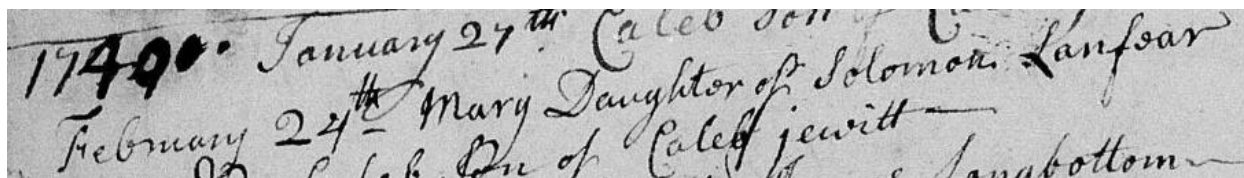 1740. January 27th Caleb Son of
February 24th Mary Daughter of Solomon Lanfear
Caleb Son of Caleb jewitt
Longbottom